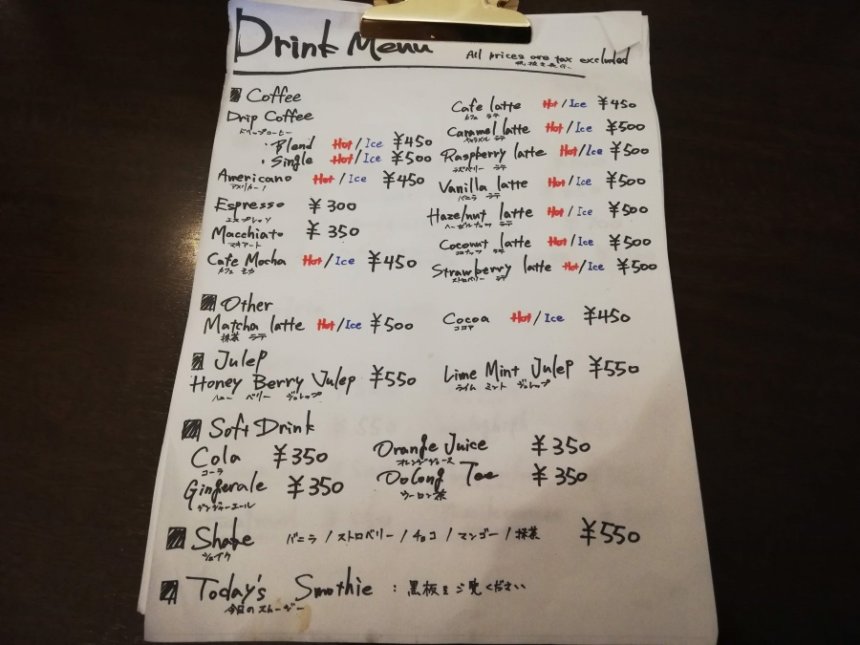 Drink Menu
All prices are tax excluded
Coffee
Drip Coffee
ドリップコーヒー
・Blend Hot/Ice ¥450
・Single Hot/Ice ¥500
Americano Hot/Ice ¥450
アメリカーノ
Espresso ¥300
エスプレッソ
Macchiato ¥350
マキアート
Cafe Mocha Hot/Ice ¥450
カフェ モカ
Cafe latte Hot/Ice ¥450
カフェ ラテ
Caramel latte Hot/Ice ¥500
キャラメル ラテ
Raspberry latte Hot/Ice ¥500
ラズベリー ラテ
Vanilla latte Hot/Ice ¥500
バニラ ラテ
Hazelnut latte Hot/Ice ¥500
ヘーゼルナッツ ラテ
Coconut latte Hot/Ice ¥500
ココナッツ ラテ
Strawberry latte Hot/Ice ¥500
ストロベリー ラテ
Other
Matcha latte Hot/Ice ¥500
抹茶 ラテ
Cocoa Hot/Ice ¥450
ココア
Julep
Honey Berry Julep ¥550
ハニー ベリー ジュレップ
Lime Mint Julep ¥550
ライム ミント ジュレップ
Soft Drink
Cola ¥350
コーラ
Orange Juice ¥350
オレンジジュース
Gingerale ¥350
ジンジャーエール
Oolong Tee ¥350
ウーロン茶
Shake バニラ/ストロベリー/チョコ/マンゴー/抹茶 ¥550
シェイク
Today's Smothie : 黒板をご覧ください
今日のスムージー